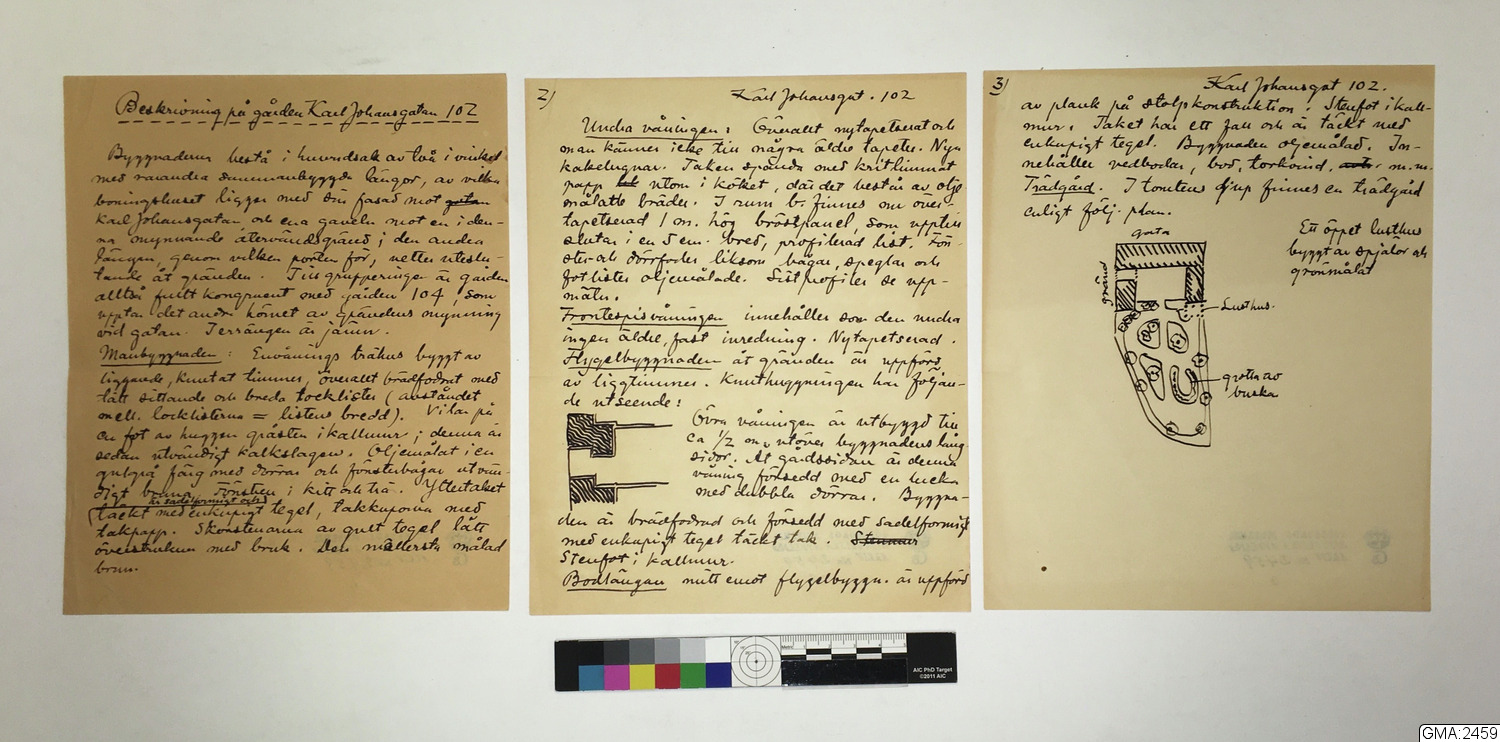 Beskrivning på gården Karl Johansgatan 102
Byggnaderna bestå i huvudsak av två i vinkel
med varandra sammanbyggda längor, av vilka
boningshuset ligger med sin fasad mot gatan
Karl Johansgatan och ena gaveln mot en i den-
na mynnande återvändsgränd; den andra
längan, genom vilken porten för, vetter uteslu-
tande åt gränden. Till grupperingen är gården
alltså fullt kongruent med gården 104, som
upptar det andra hörnet av grändens mynning
vid gatan. Terrängen är jämn.
Manbyggnaden: Envånings trähus byggt av
liggande, knutat timmer, överallt brädfodrat med
tätt sittande och breda locklister (avståndet
mell. locklisterna = listens bredd). Vilar på
en fot av huggen gråsten i kallmur; denna är
sedan utvändigt kalkslagen. Oljemålat i en
gulgrå färg med dörrar och fönsterbågar utvän-
digt bruna. Fönstren i kitt och trä. Yttertaket
är sadelformigt och
täckt med enkupigt tegel, takkuporna med
takpapp. Skorstenarna av gult tegel lätt
överstrukna med bruk. Den mellersta målad
brun.
2) Karl Johansgat. 102
Undra våningen: Överallt nytapetserat och
man känner icke till några äldre tapeter. Nya
kakelugnar. Taken spända med kritlimmat
papp utom i köket, där det består av olje-
målade bräder. I rum b. finnes nu över-
tapetserad 1 m. hög bröstpanel, som upptill
slutar i en 5 cm. bred, profilerad list. Fön-
ster- och dörrfoder liksom bågar, speglar och
fotlister oljemålade. Listprofiler se upp-
mätn.
Frontespisvåningen innehåller som den undra
ingen äldre, fast inredning. Nytapetserad.
Flygelbyggnaden åt gränden är uppförd
av liggtimmer. Knuthuggningen har följan-
de utseende:
Övra våningen är utbyggd till
ca 1/2 m. utöver byggnadens lång-
sidor. Åt gårdssidan är denna
våning försedd med en lucka
med dubbla dörrar. Byggna-
den är brädfodrad och försedd med sadelformigt
med enkupigt tegel täckt tak. Stenmur
Stenfot i kallmur.
Bodlängan mitt emot flygelbyggn. är uppförd
3) Karl Johansgat 102.
av plank på stolpkonstruktion. Stenfot i kall-
mur. Taket har ett fall och är täckt med
enkupigt tegel. Byggnaden oljemålad. In-
nehåller vedbodar, bod, torkvind, m.m.
Trädgård. I tomtens djup finnes en trädgård
enligt följ. plan.
gata
gränd
Lusthus.
grotta av
buska
Ett öppet lusthus
byggt av spjälor och
grönmålat
AIC PhD Target
©2011 AIC
GMA:2459